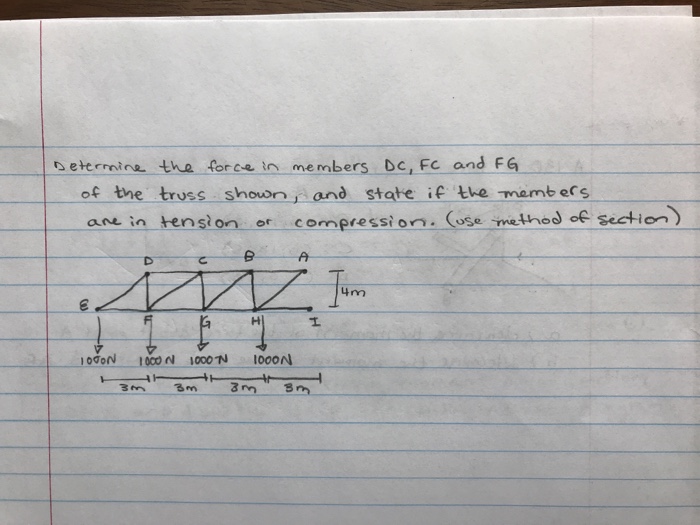 Determine the force in members DC, FC and FG
of the truss shown, and state if the members
are in tension or compression. (use method of section)
D C B A
4m
E
F G H I
1000N 1000N 1000N 1000N
3m 3m 3m 3m